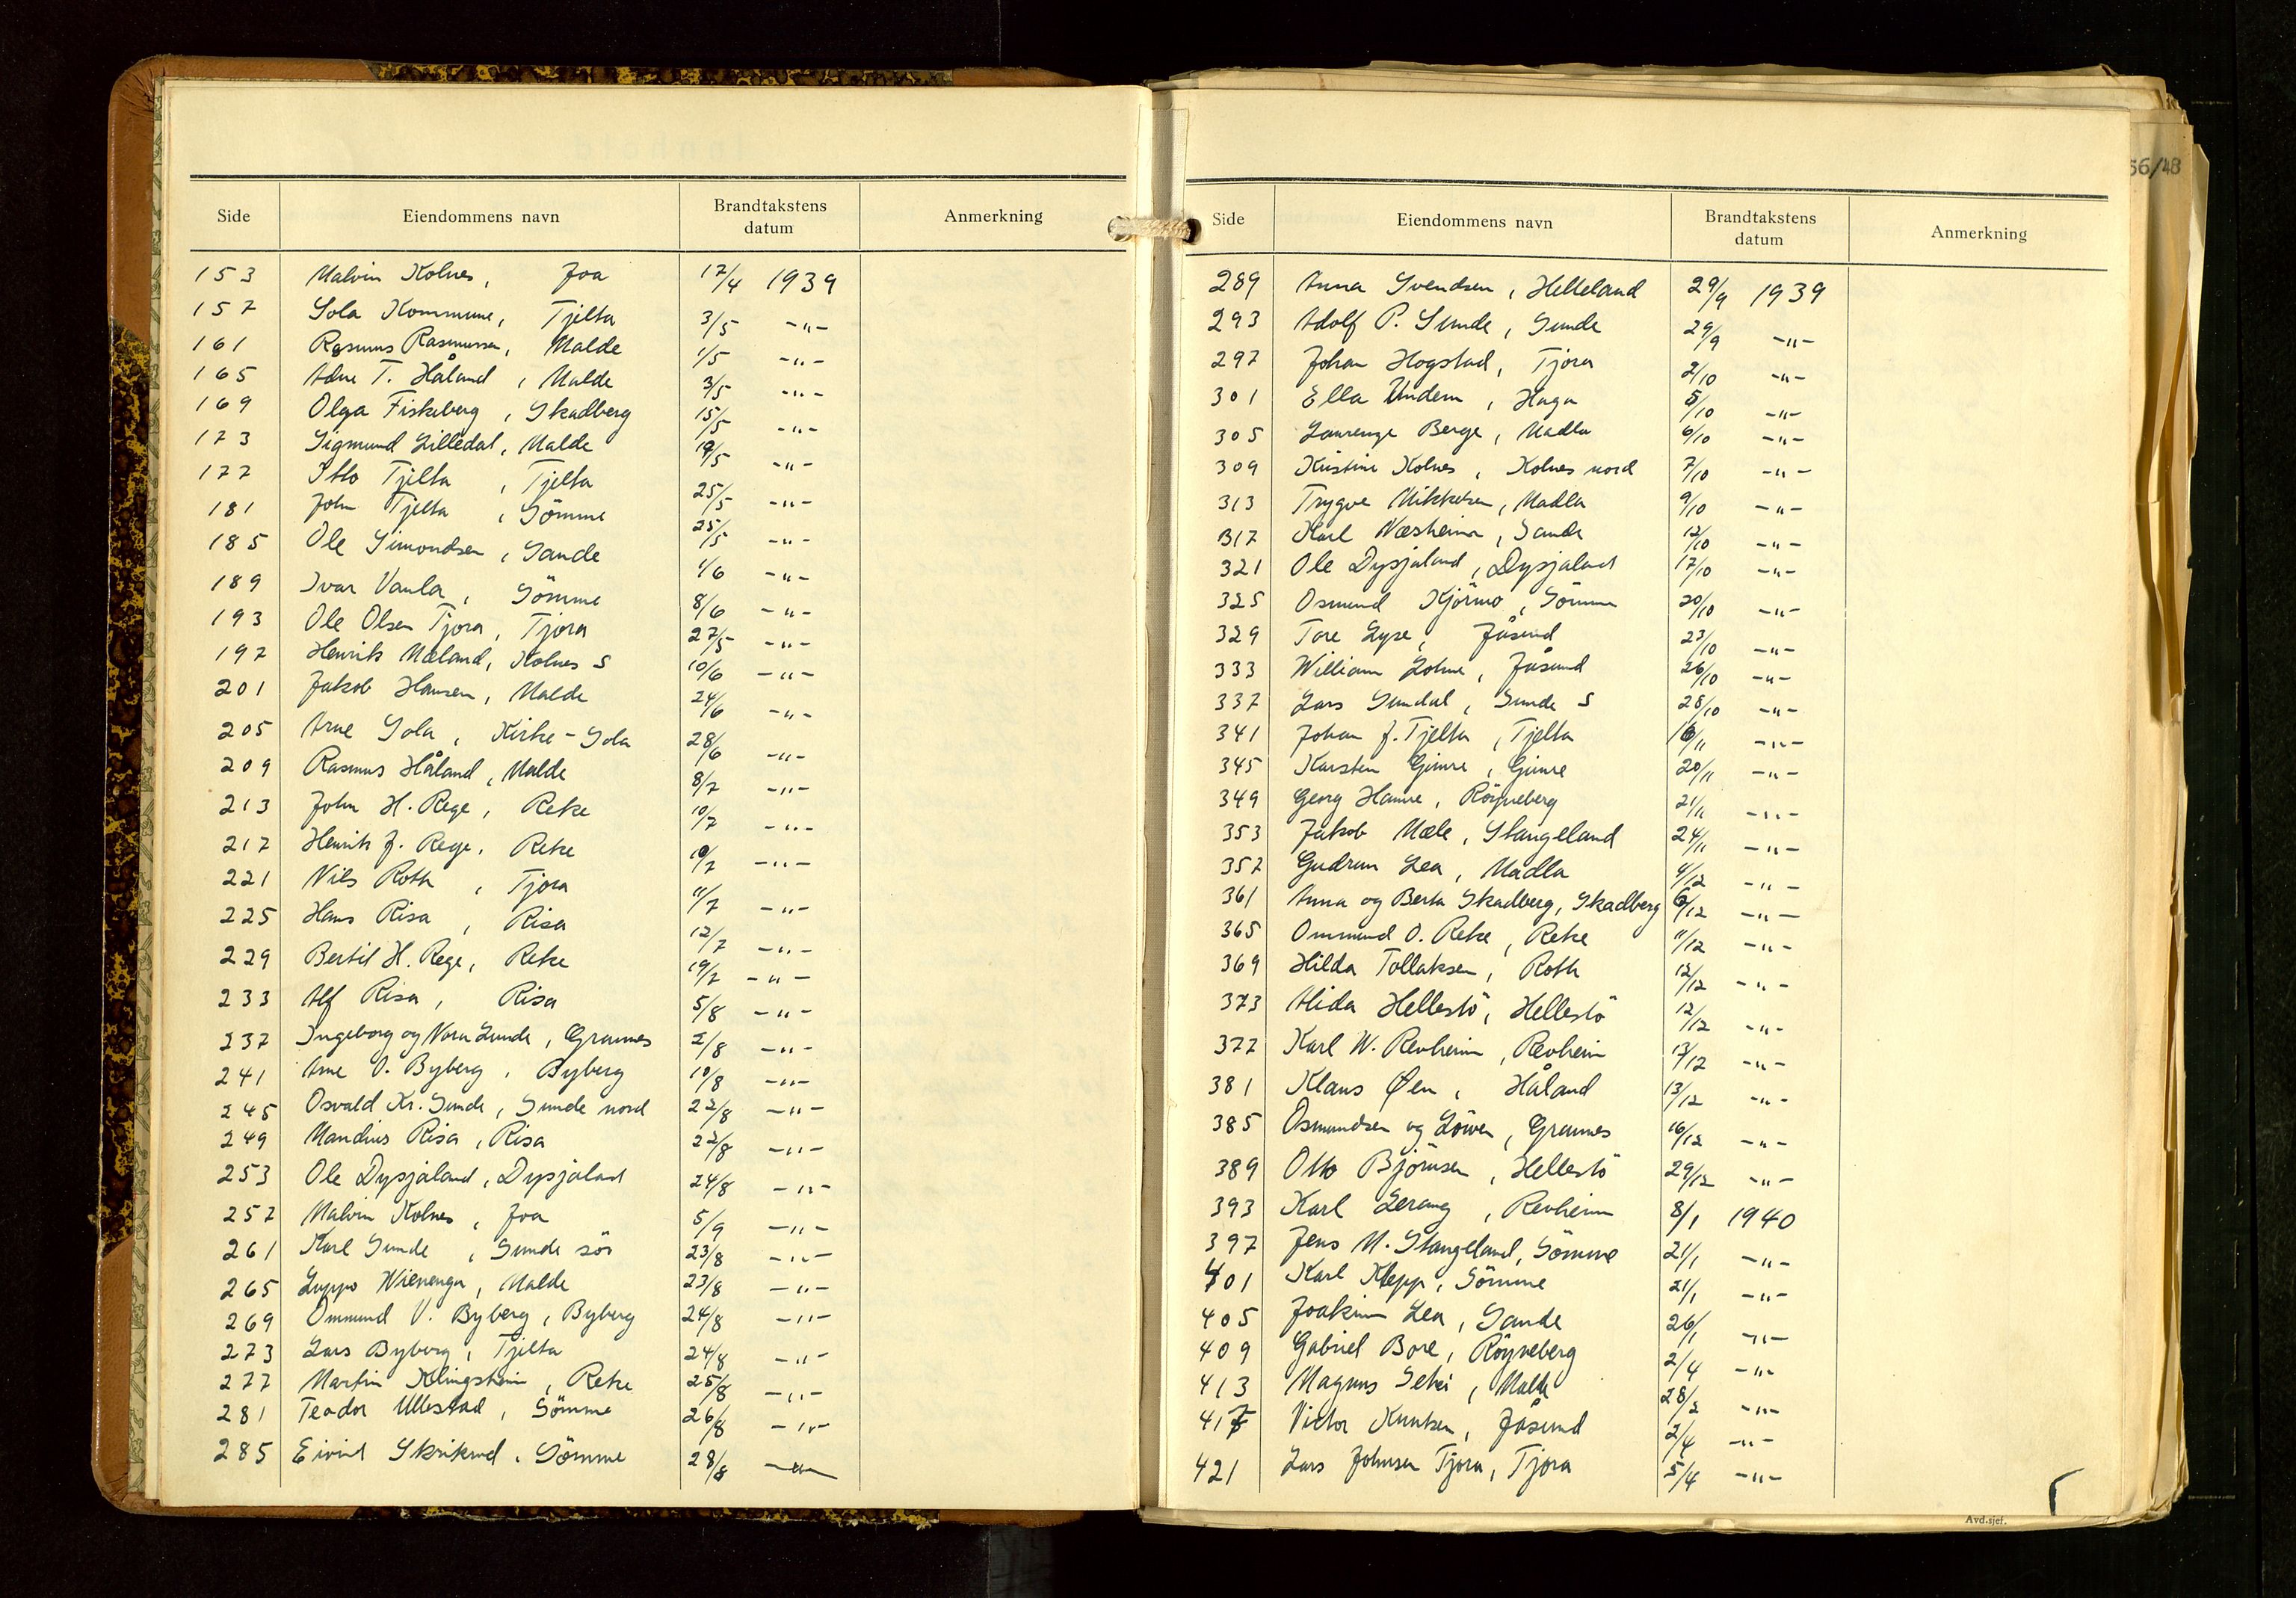 Side Eiendommens navn Brandtakstens datum Anmerkning
153 Malvin Kolnes, Joa 17/4 1939
157 Sola Kommune, Tjelta 3/5 -"-
161 Rasmus Rasmussen, Malde 1/5 -"-
165 Adne T. Håland, Malde 3/5 -"-
169 Olga Fiskeberg, Skadberg 15/5 -"-
173 Sigmund Lilledal, Malde 19/5 -"-
177 Otto Tjelta, Tjelta 25/5 -"-
181 John Tjelta, Sömme 25/5 -"-
185 Ole Simondsen, Sande 1/6 -"-
189 Ivar Vaula, Sömme 8/6 -"-
193 Ole Olsen Tjora, Tjora 27/5 -"-
197 Henrik Mæland, Kolnes S 10/6 -"-
201 Jakob Hansen, Malde 24/6 -"-
205 Arne Sola, Kirke-Sola 28/6 -"-
209 Rasmus Håland, Malde 8/7 -"-
213 John H. Rege, Reke 10/7 -"-
217 Henrik J. Rege, Reke 10/7 -"-
221 Nils Roth, Tjora 11/7 -"-
225 Hans Risa, Risa 12/7 -"-
229 Bertil H. Rege, Reke 19/7 -"-
233 Alf Risa, Risa 5/8 -"-
237 Ingeborg og Nora Lunde, Grannes 2/8 -"-
241 Arne O. Byberg, Byberg 10/8 -"-
245 Osvald Kr. Sunde, Sunde nord 22/8 -"-
249 Mandius Risa, Risa 22/8 -"-
253 Ole Dysjaland, Dysjaland 24/8 -"-
257 Malvin Kolnes, Joa 5/9 -"-
261 Karl Sunde, Sunde sör 23/8 -"-
265 Luppo Wienenga, Malde 23/8 -"-
269 Ommund V. Byberg, Byberg 24/8 -"-
273 Lars Byberg, Tjelta 24/8 -"-
277 Martin Klingsheim, Reke 25/8 -"-
281 Teodor Ullestad, Sömme 26/8 -"-
285 Eivind Skrikrud, Sömme 28/8 -"-
56/48
Side Eiendommens navn Brandtakstens datum Anmerkning
289 Anna Svendsen, Helleland 29/9 1939
293 Adolf P. Sunde, Sunde 29/9 -"-
297 Johan Hogstad, Tjora 2/10 -"-
301 Ella Undem, Haga 5/10 -"-
305 Laurenze Berge, Madla 6/10 -"-
309 Kristine Kolnes, Kolnes nord 7/10 -"-
313 Trygve Mikkelsen, Madla 9/10 -"-
317 Karl Næsheim, Sande 12/10 -"-
321 Ole Dysjaland, Dysjaland 17/10 -"-
325 Osmund Kjörmo, Sömme 20/10 -"-
329 Tore Lyse, Jåsund 23/10 -"-
333 William Lohne, Jåsund 26/10 -"-
337 Lars Sundal, Sunde S 28/10 -"-
341 Johan J. Tjelta, Tjelta 16/11 -"-
345 Karsten Gimre, Gimre 20/11 -"-
349 Georg Hamre, Röyneberg 21/11 -"-
353 Jakob Mæle, Stangeland 24/11 -"-
357 Gudrun Lea, Madla 4/12 -"-
361 Anna og Berta Skadberg, Skadberg 6/12 -"-
365 Ommund O. Reke, Reke 11/12 -"-
369 Hilda Tollaksen, Roth 12/12 -"-
373 Alida Hellestö, Hellestö 12/12 -"-
377 Karl W. Revheim, Revheim 13/12 -"-
381 Klaus Øen, Håland 13/12 -"-
385 Osmundsen og Löwer, Grannes 16/12 -"-
389 Otto Björnsen, Hellestö 29/12 -"-
393 Karl Lerang, Revheim 8/1 1940
397 Jens M. Stangeland, Sömme 21/1 -"-
401 Karl Klepp, Sömme 21/1 -"-
405 Joakim Lea, Sande 26/1 -"-
409 Gabriel Bore, Röyneberg 2/4 -"-
413 Magnus Malde 28/2 -"-
417 Victor Knutsen, Jåsund 2/4 -"-
421 Lars Johnsen Tjora, Tjora 5/4 -"-
Avd.sjef.